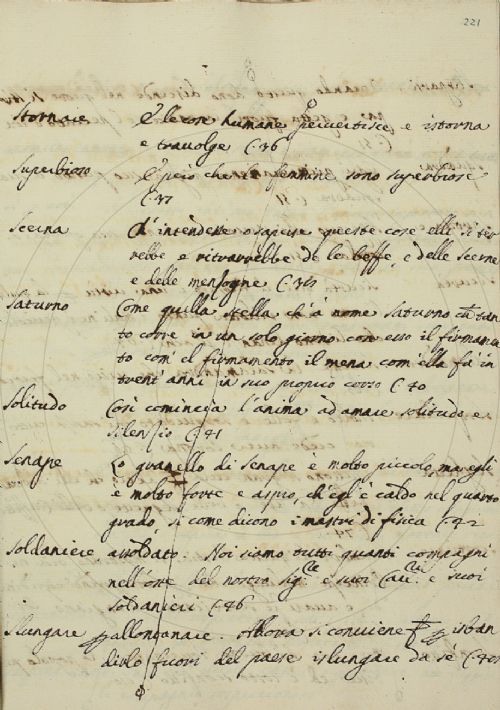 221
Stornare E le cose humane pervertisce e istorna
e travolge C. 36
Superbioso E però che le femine sono superbiose
C. 37
Scerna d'intendere o sapere queste cose elli si ter
rebbe e ritrarrebbe de le beffe, e delle scerne
e delle mensogne C.
Saturno Come quella stella ch'à nome Saturno che tan
to corre in un solo giorno con esso il firmamen
to com' el firmamento il mena com' ella fa in
trent' anni in suo proprio corso C. 40
Solitudo Così comincia l'anima ad amare solitudo e
silensio C. 41
Senape Lo granello di senape è molto piccolo, ma egli
è molto forte e aspro, ch'egli è caldo nel quarto
grado, si come dicono i mastri di fisica C. 42
Soldaniere assoldato. Noi siamo tutti quanti compagni
nell' oste del nostro Sig.re e suoi Cav.ri e suoi
soldanieri C. 46
Slungare allontanare. Allora si conviene isban
dirlo fuori del paese islungare da sè C.